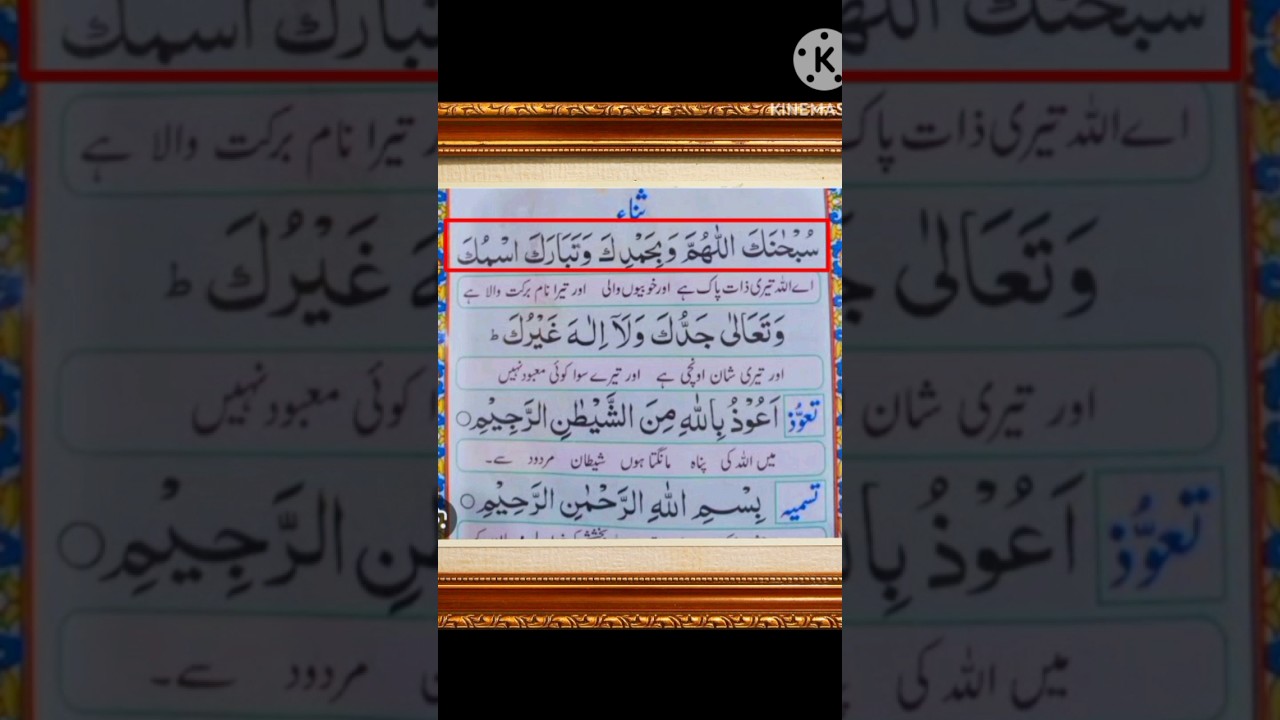 KINEMAS
ثناء
سُبْحٰنَكَ اللّٰهُمَّ وَبِحَمْدِكَ وَتَبَارَكَ اسْمُكَ
اے اللہ تیری ذات پاک ہے اور خوبیوں والی اور تیرا نام برکت والا ہے
وَتَعَالٰى جَدُّكَ وَلَآ اِلٰهَ غَيْرُكَ ط
اور تیری شان اونچی ہے اور تیرے سوا کوئی معبود نہیں
تعوُّذ اَعُوْذُ بِاللّٰهِ مِنَ الشَّيْطٰنِ الرَّجِيْمِ○
میں اللہ کی پناہ مانگتا ہوں شیطان مردود سے۔
تسمیہ بِسْمِ اللّٰهِ الرَّحْمٰنِ الرَّحِيْمِ○